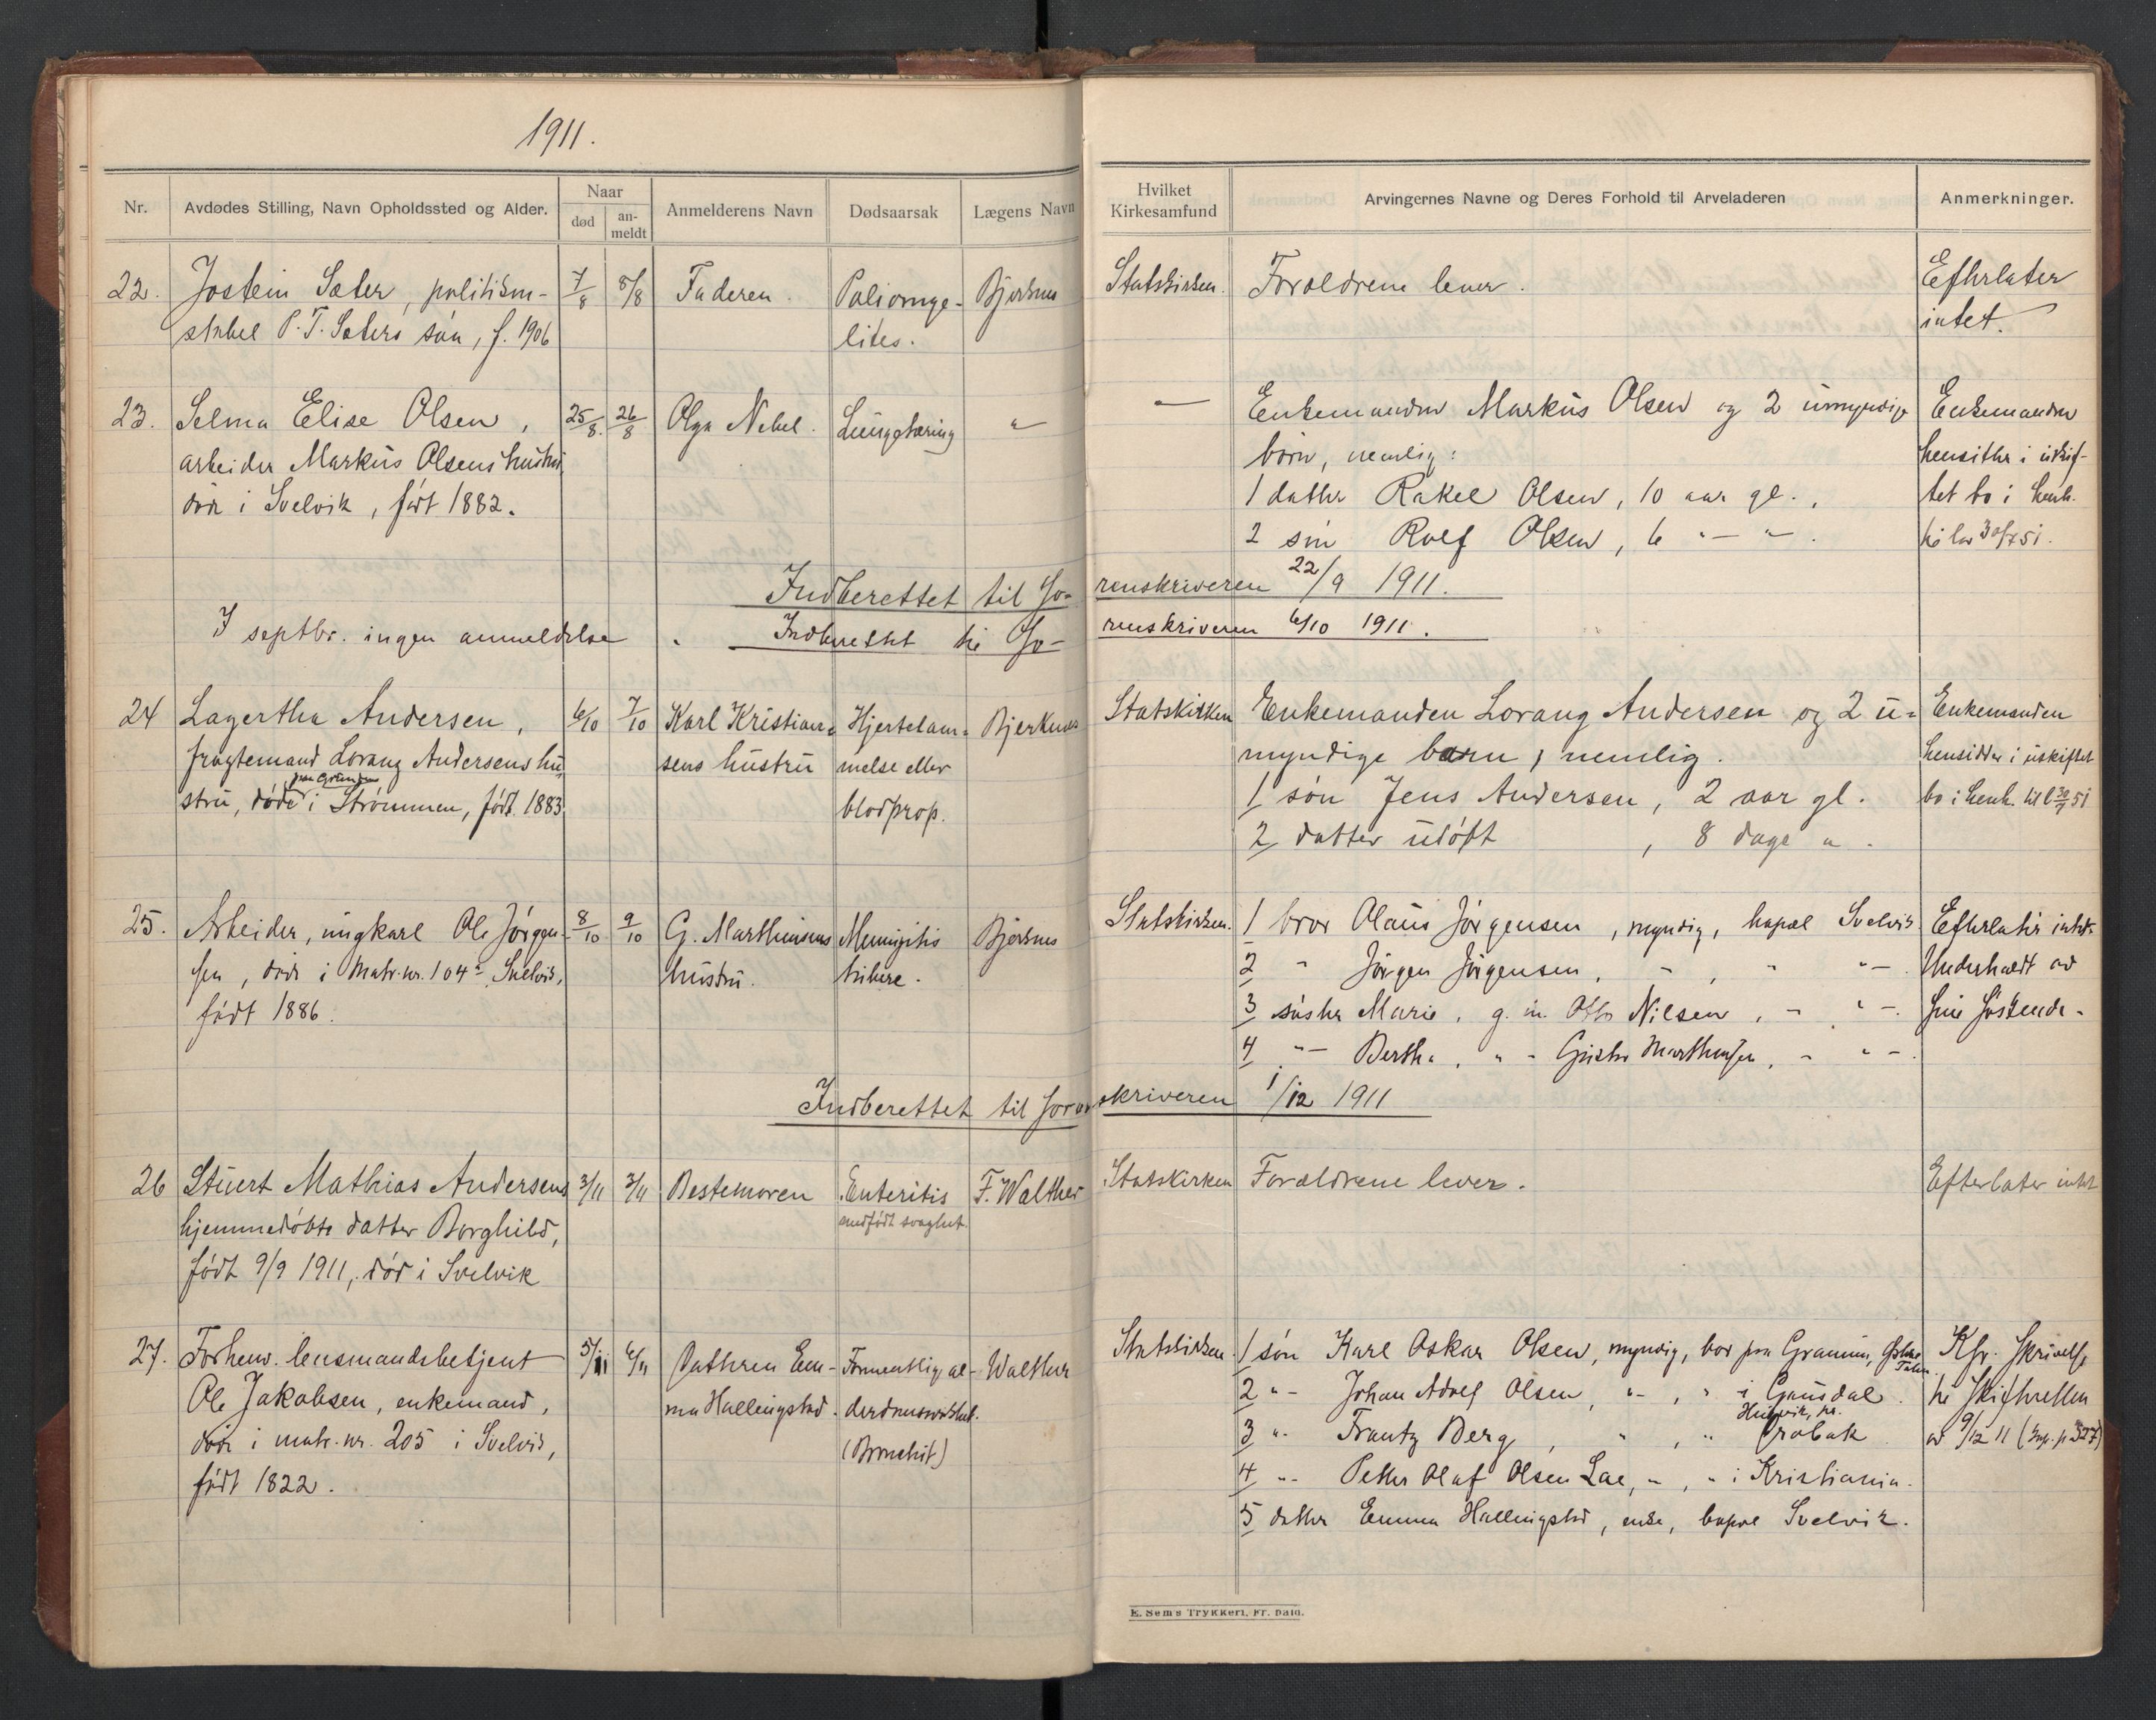 1911.
Nr.
Avdødes Stilling, Navn Opholdssted og Alder.
Naar
død
an-
meldt
Anmelderens Navn
Dødsaarsak
Lægens Navn
Hvilket
Kirkesamfund
Arvingernes Navne og Deres Forhold til Arveladeren
Anmerkninger.
22. Jostein Sæter, politikon- 7/8 8/8 Faderen. Poliomye- Bjerknes Statskirken. Forældrene lever. Efterlater
stabel P. T. Sæters søn, f. 1906 lites. intet.
23. Selma Elise Olsen, 25/8. 26/8 Olga Nebel. Lungetæring " — Enkemanden Markus Olsen og 2 umyndige Enkemanden
arbeider Markus Olsens hustru børn, nemlig: hensitter i uskif-
død i Svelvik, født 1882. 1 datter Rakel Olsen, 10 aar gl., tet bo i henh.
2 søn Rolf Olsen, 6 " — " —. til lov 30/7 51.
Indberettet til So- renskriveren 22/9 1911.
I septbr. ingen anmeldelse. Indberettet til So- renskriveren 6/10 1911.
24 Lagertha Andersen, 6/10 7/10 Karl Kristian- Hjertelam- Bjerknes Statskirken Enkemanden Lorang Andersen og 2 u- Enkemanden
fragtemand Lorang Andersens hu- sens hustru melse eller myndige barn, nemlig. hensidder i uskiftet
paa Grunden
stru, døde i Strømmen, født 1883 blodprop. 1/ søn Jens Andersen, 2 aar gl. bo i henh. til l 30/7 51
2/ datter udøpt, 8 dage ".
25. Arbeider, ungkarl Ole Jørgen- 8/10 9/10 G. Marthinsens Meningitis Bjerknes Statskirken. 1 bror Olaus Jørgensen, myndig, bopæl Svelvik Efterlatir intet.
sen, død i Matr.nr. 104a Svelvik, hustru. tuberc. 2 " Jørgen Jørgensen, " , " " —. Underholdt av
født 1886. 3 søster Marie, g. m. Otto Nilsen, " " —. sine søskende.
4 " — Bertha, " " Gustav Marthinsen, " " —.
Indberettet til Soren skriveren 1/12 1911
26 Stuert Mathias Andersens 3/11 3/11 Bestemoren Enteritis F. Walther Statskirken Forældrene lever. Efterlater intet
hjemmedøbte datter Borghild, medfødt svaghet.
født 9/9 1911, død i Svelvik
27. Forhenv. lensmandsbetjent 5/11 6/11 Datteren Em- Formentlig al- Walther Statskirken. 1/ søn Karl Oskar Olsen, myndig, bor paa Granum, Østre Kfr. skrivelse
Toten
Ole Jakobsen, enkemand, ma Hallingstad. derdomssvakhet. 2 " — Johan Adolf Olsen, " —, " i Gausdal. til skifteretten
Hurvik, pr.
død i matr. nr. 205 i Svelvik, (Bronchit) 3 " Frantz Berg, " , " Drøbak av 9/12 11
født 1822. 4 " — Petter Olaf Olsen Lae, " , " i Kristiania.
5 datter Emma Hallingstad, enke, bopæl Svelvik.
E. Sems Trykkeri, Fr. hald.